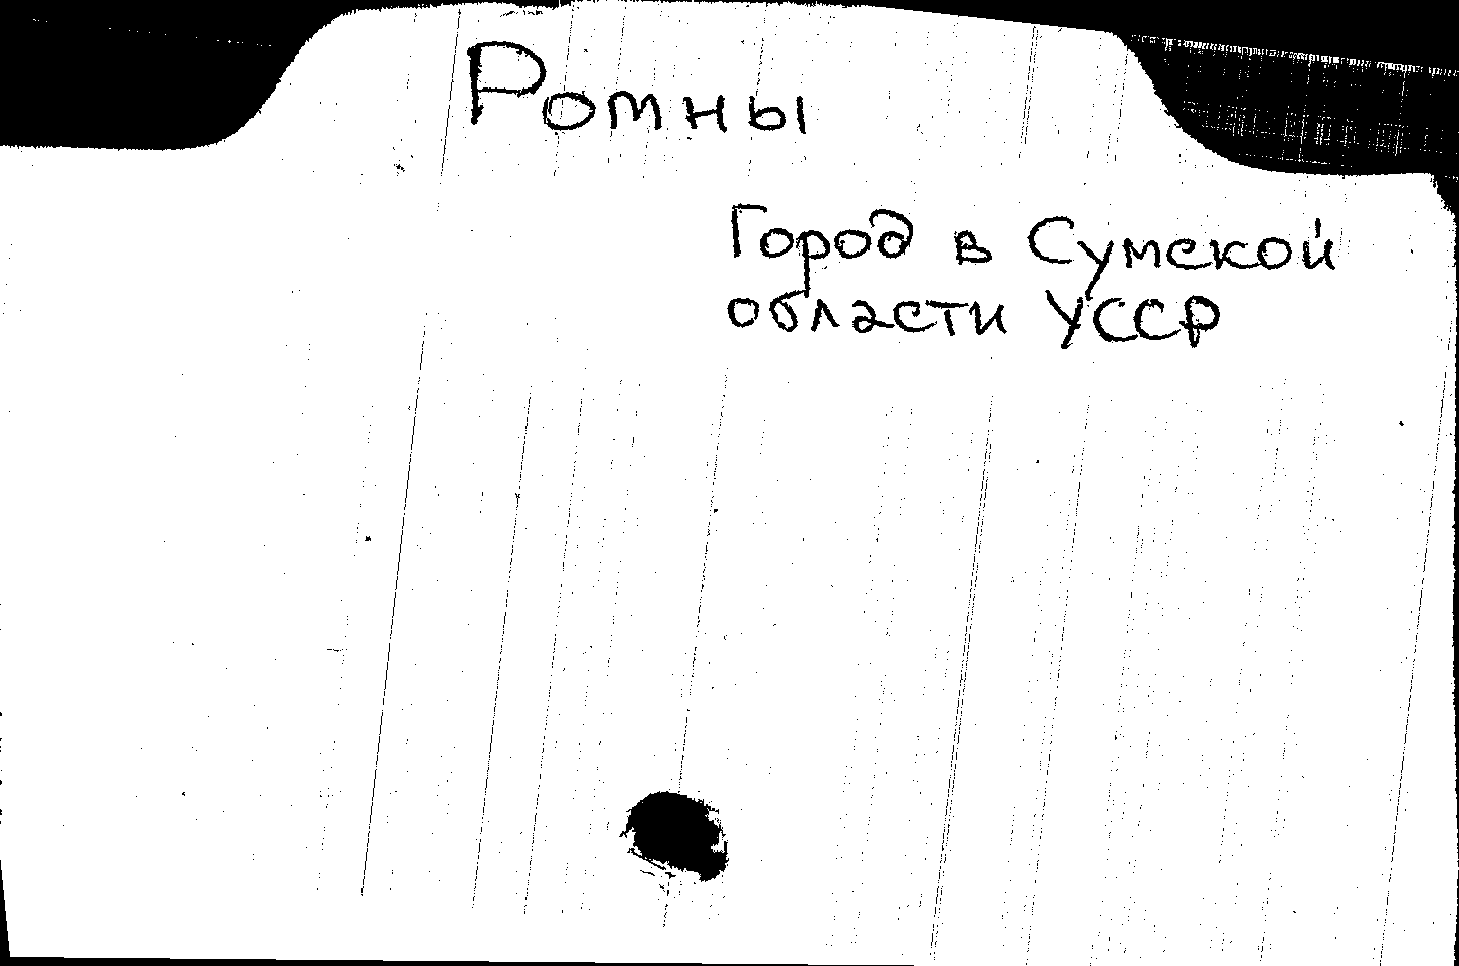 Ромны
Город в Сумской
области УССР